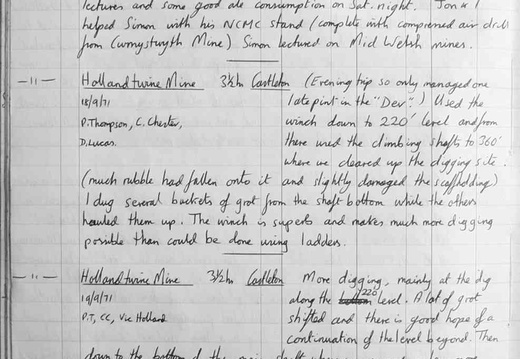 lectures and some good ale consumption on Sat. night. Jon & I
helped Simon with his NCMC stand (complete with compressed air drill
from Cwmystwyth Mine) Simon lectured on Mid Welsh mines.
— 11 — Hollandtwine Mine 3½hr Castleton (Evening trip so only managed one
18/9/71 late pint in the "Dev".) Used the
P. Thompson, C. Chester, winch down to 220' level and from
D. Lucas. there used the climbing shafts to 360'
where we cleared up the digging site.
(much rubble had fallen onto it and slightly damaged the scaffolding)
I dug several buckets of grot from the shaft bottom while the others
hauled them up. The winch is superb and makes much more digging
possible than could be done using ladders.
— 11 — Hollandtwine Mine 3½hr Castleton More digging, mainly at the dig
19/9/71 along the bottom 220' level. A lot of grot
P.T, CC, Vic Holland shifted and there is good hope of a
continuation of the level beyond. Then
down to the bottom of the main shaft where